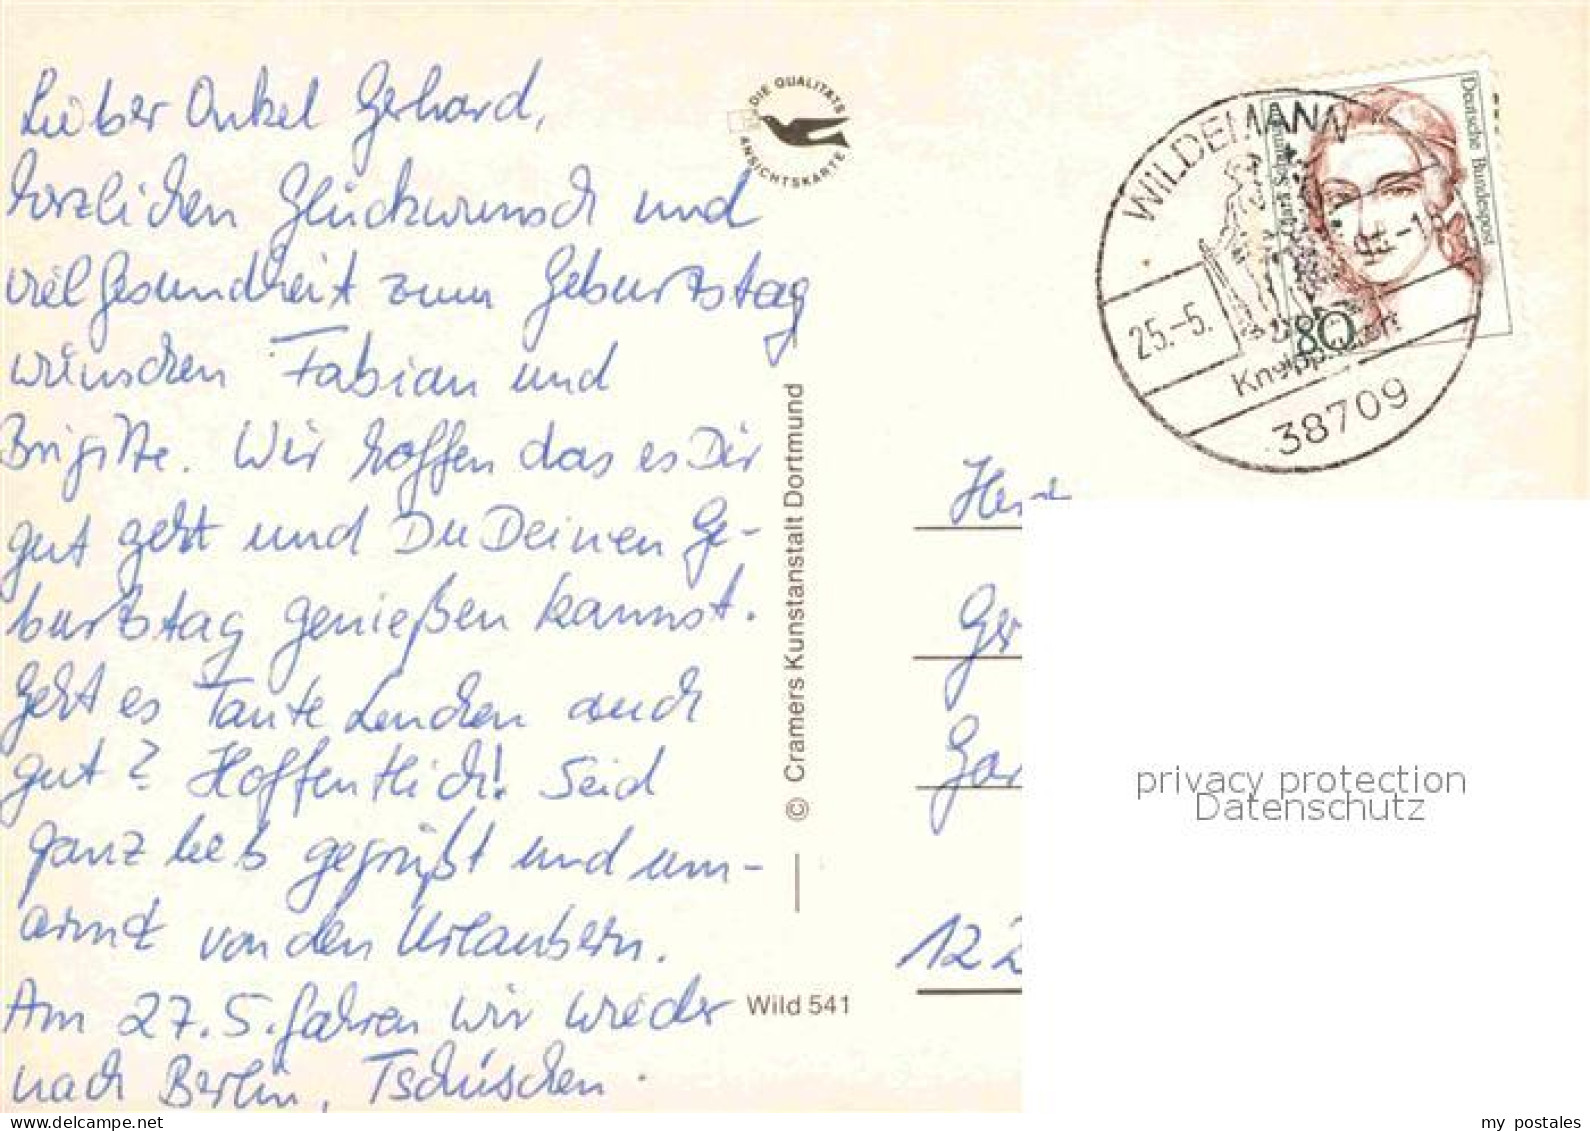 Lieber Onkel Gerhard,
herzlichen Glückwunsch und
viel Gesundheit zum Geburtstag
wünschen Fabian und
Brigitte. Wir hoffen das es Dir
gut geht und Du Deinen Ge-
burtstag genießen kannst.
Geht es Tante Lenchen auch
gut? Hoffentlich! Seid
ganz lieb gegrüßt und um-
armt von den Urlaubern.
Am 27.5. fahren wir wieder
nach Berlin, Tschüschen.
DIE QUALITÄTS
ANSICHTSKARTE
© Cramers Kunstanstalt Dortmund
Wild 541
WILDEMANN
25.-5.
38709
Deutsche Bundespost
80
Ger
Gar
122
privacy protection
Datenschutz
delcampe.net
my_postales